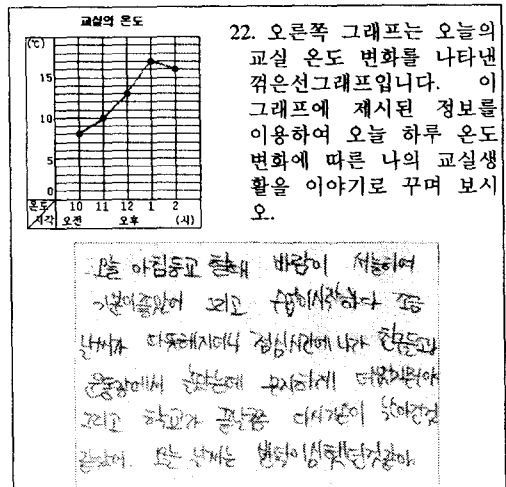 교실의 온도
(℃)
15
10
5
0
온도
시각
10 11 12 1 2
오전 오후 (시)
22. 오른쪽 그래프는 오늘의
교실 온도 변화를 나타낸
꺾은선그래프입니다. 이
그래프에 제시된 정보를
이용하여 오늘 하루 온도
변화에 따른 나의 교실생
활을 이야기로 꾸며 보시
오.
오늘 아침등교 할때 바람이 서늘하여
기분이좋았어 그리고 수업이시작하다 조금
날씨가 따뜻해지더니 점심시간에 나가 친구들과
운동장에서 놀았는데 무지하게 더웠
그리고 학교가 끝날쯤 다시기온이 낮아진것
같았어. 오늘 날씨는 변덕이심했던것같아.